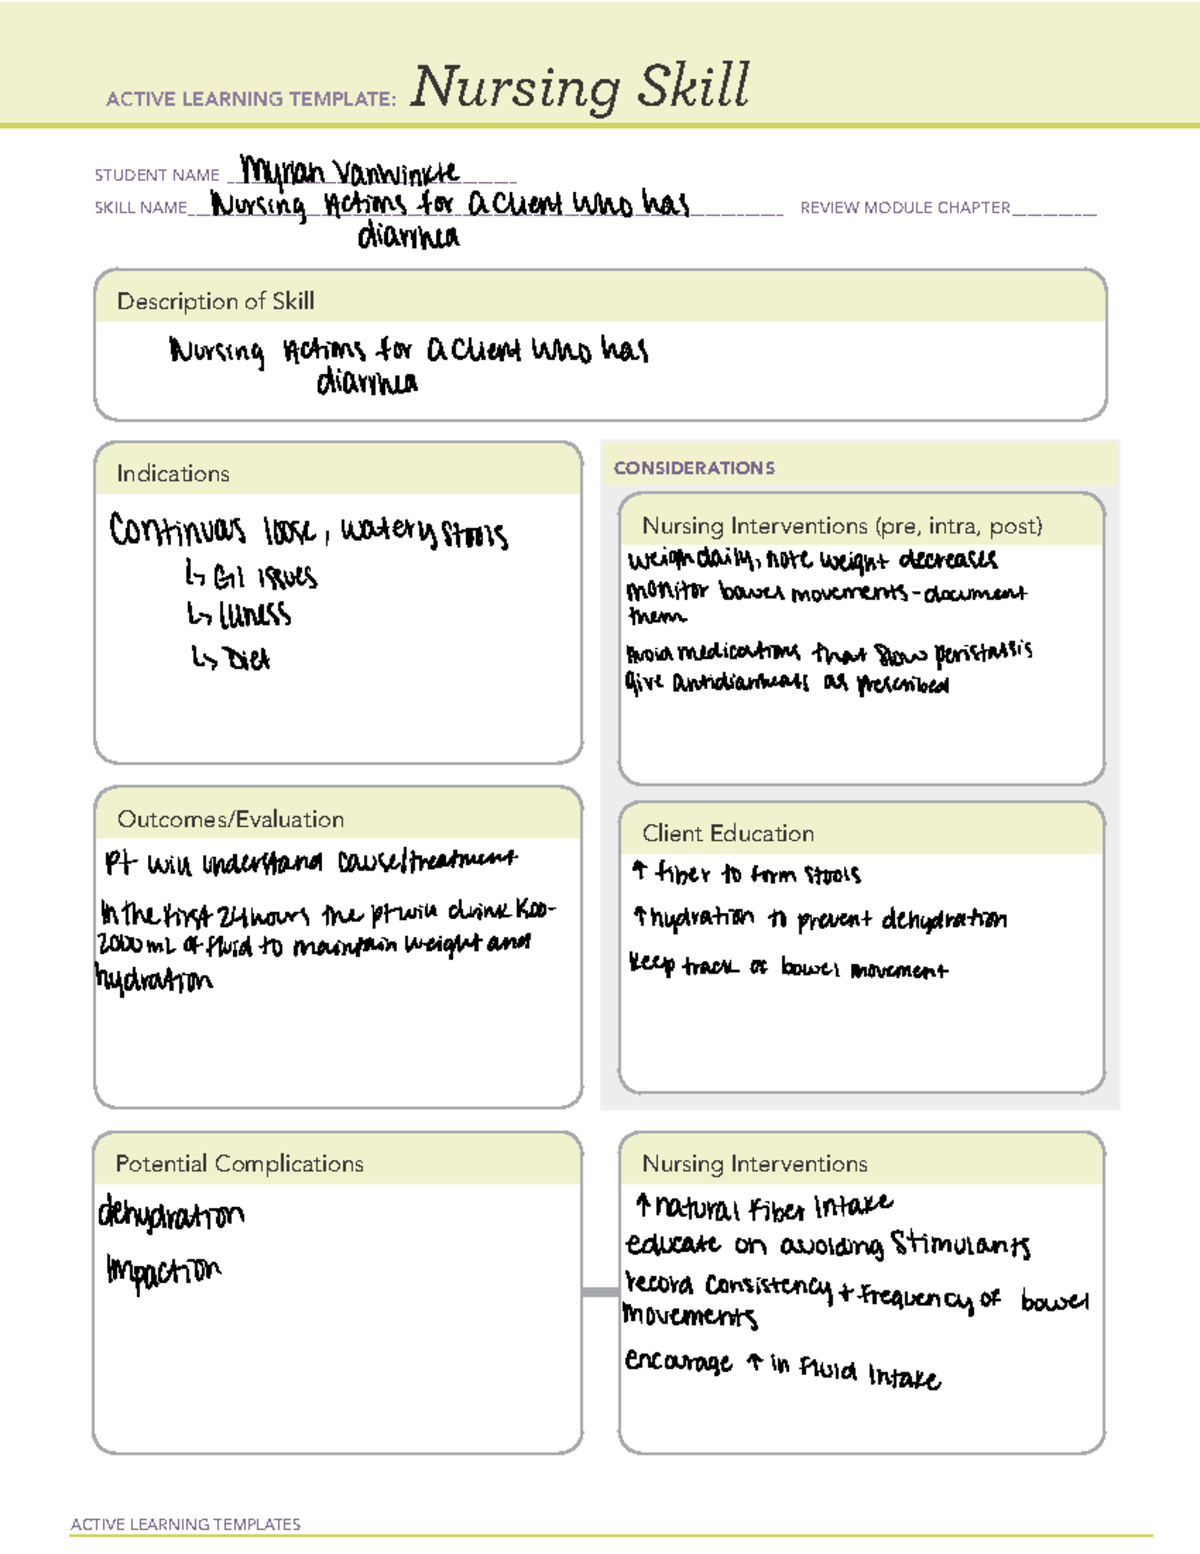 ACTIVE LEARNING TEMPLATE: Nursing Skill
STUDENT NAME Myriah VanWinkle
SKILL NAME Nursing Actions for a client who has REVIEW MODULE CHAPTER
diarrhea
Description of Skill
Nursing Actions for a client who has
diarrhea
Indications
Continuas loose, watery stools
↳ GI issues
↳ Illness
↳ Diet
CONSIDERATIONS
Nursing Interventions (pre, intra, post)
weigh daily, note weight decreases
monitor bowel movements - document
them
Avoid medications that slow peristalsis
give antidiarrheals as prescribed
Outcomes/Evaluation
Pt will understand cause/treatment
In the first 24 hours the pt will drink
2000 mL of fluid to maintain weight and
hydration
Client Education
↑ fiber to form stools
↑ hydration to prevent dehydration
keep track of bowel movement
Potential Complications
dehydration
Impaction
Nursing Interventions
↑ natural fiber intake
educate on avoiding stimulants
record consistency + frequency of bowel
movements
encourage ↑ in fluid intake
ACTIVE LEARNING TEMPLATES